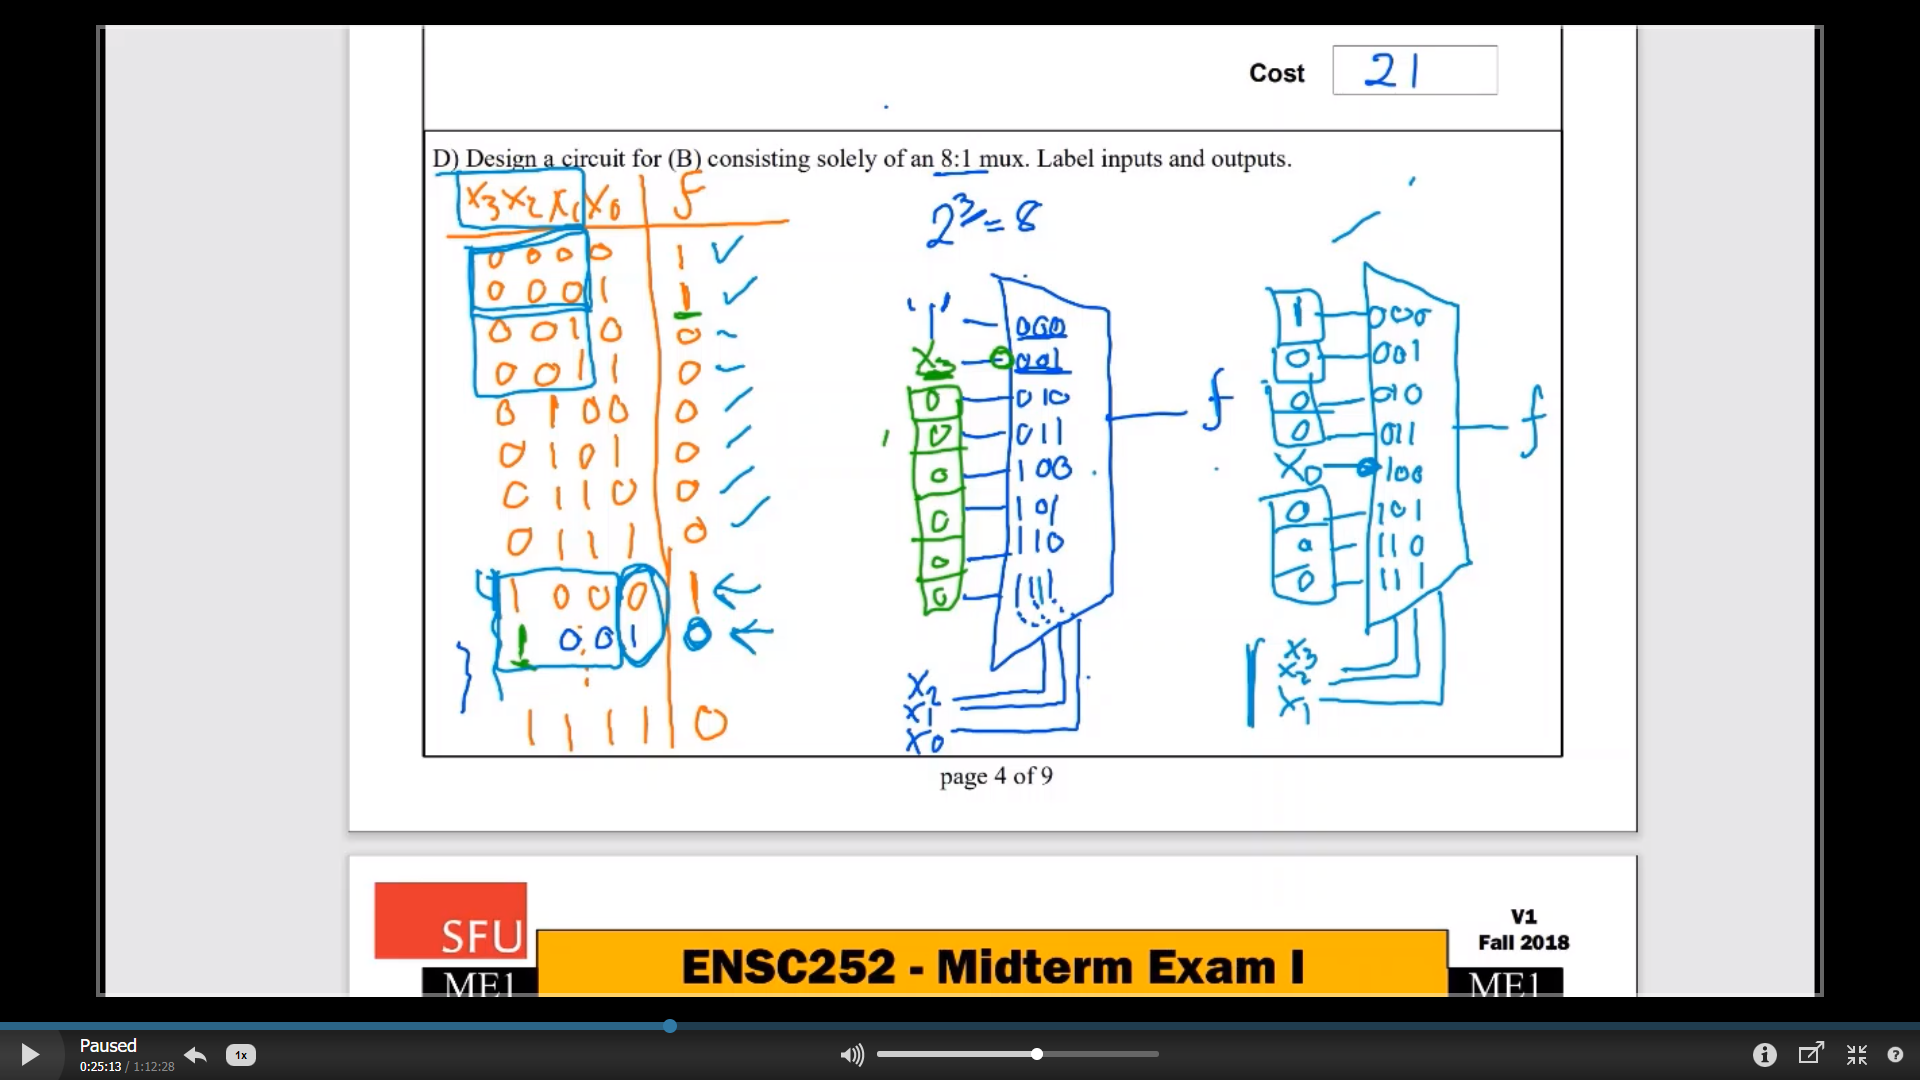 Cost 21
D) Design a circuit for (B) consisting solely of an 8:1 mux. Label inputs and outputs.
x3 x2 x1 x0 f
0 0 0 0 1
0 0 0 1 1
0 0 1 0 0
0 0 1 1 0
0 1 0 0 0
0 1 0 1 0
0 1 1 0 0
0 1 1 1 0
1 0 0 0 1
1 0 0 1 0
1 1 1 1 0
2^3 = 8
"1" 000
x3 001
0 010
0 011
0 100
0 101
0 110
0 111
f
x2
x1
x0
1 000
0 001
0 010
0 011
x0 100
0 101
0 110
0 111
f
x3
x2
x1
page 4 of 9
SFU
ME1
ENSC252 - Midterm Exam I
V1
Fall 2018
ME1
Paused
0:25:13 / 1:12:28
1x